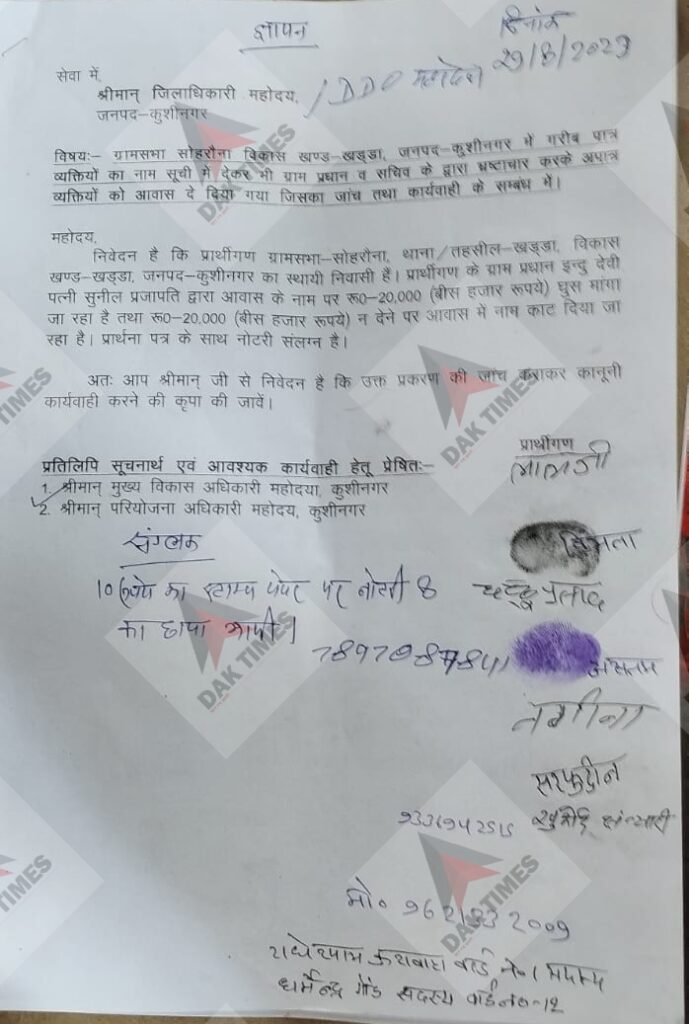 ज्ञापन
दिनांक
29/8/2023
सेवा में,
श्रीमान् जिलाधिकारी महोदय, / DDO महोदय
जनपद–कुशीनगर
विषयः– ग्रामसभा सोहरौना विकास खण्ड–खड्डा, जनपद–कुशीनगर में गरीब पात्र
व्यक्तियों का नाम सूची में देकर भी ग्राम प्रधान व सचिव के द्वारा भ्रष्टाचार करके अपात्र
व्यक्तियों को आवास दे दिया गया जिसका जांच तथा कार्यवाही के सम्बंध में।
महोदय,
निवेदन है कि प्रार्थीगण ग्रामसभा–सोहरौना, थाना/तहसील–खड्डा, विकास
खण्ड–खड्डा, जनपद–कुशीनगर का स्थायी निवासी हैं। प्रार्थीगण के ग्राम प्रधान इन्दु देवी
पत्नी सुनील प्रजापति द्वारा आवास के नाम पर रू0–20,000 (बीस हजार रूपये) घुस मांगा
जा रहा है तथा रू0–20,000 (बीस हजार रूपये) न देने पर आवास में नाम काट दिया जा
रहा है। प्रार्थना पत्र के साथ नोटरी संलग्न है।
अतः आप श्रीमान् जी से निवेदन है कि उक्त प्रकरण की जांच कराकर कानूनी
कार्यवाही करने की कृपा की जावें।
प्रार्थीगण
लालजी
प्रतिलिपि सूचनार्थ एवं आवश्यक कार्यवाही हेतू प्रेषितः–
1. श्रीमान् मुख्य विकास अधिकारी महोदया, कुशीनगर
2. श्रीमान् परियोजना अधिकारी महोदय, कुशीनगर
संग्लक
10 रुपये का स्टाम्प पेपर पर नोटरी 8
का छाया कापी।
प्रसाद
नगीना
सरफुद्दीन
9336942515
मो० 9621332009
राधेश्याम कुशवाहा वार्ड नं० 1 सदस्य
धर्मेन्द्र गोंड सदस्य वार्ड नं०-12
DAK TIMES
DAK TIMES
DAK TIMES
DAK TIMES
DAK TIMES
DAK TIMES